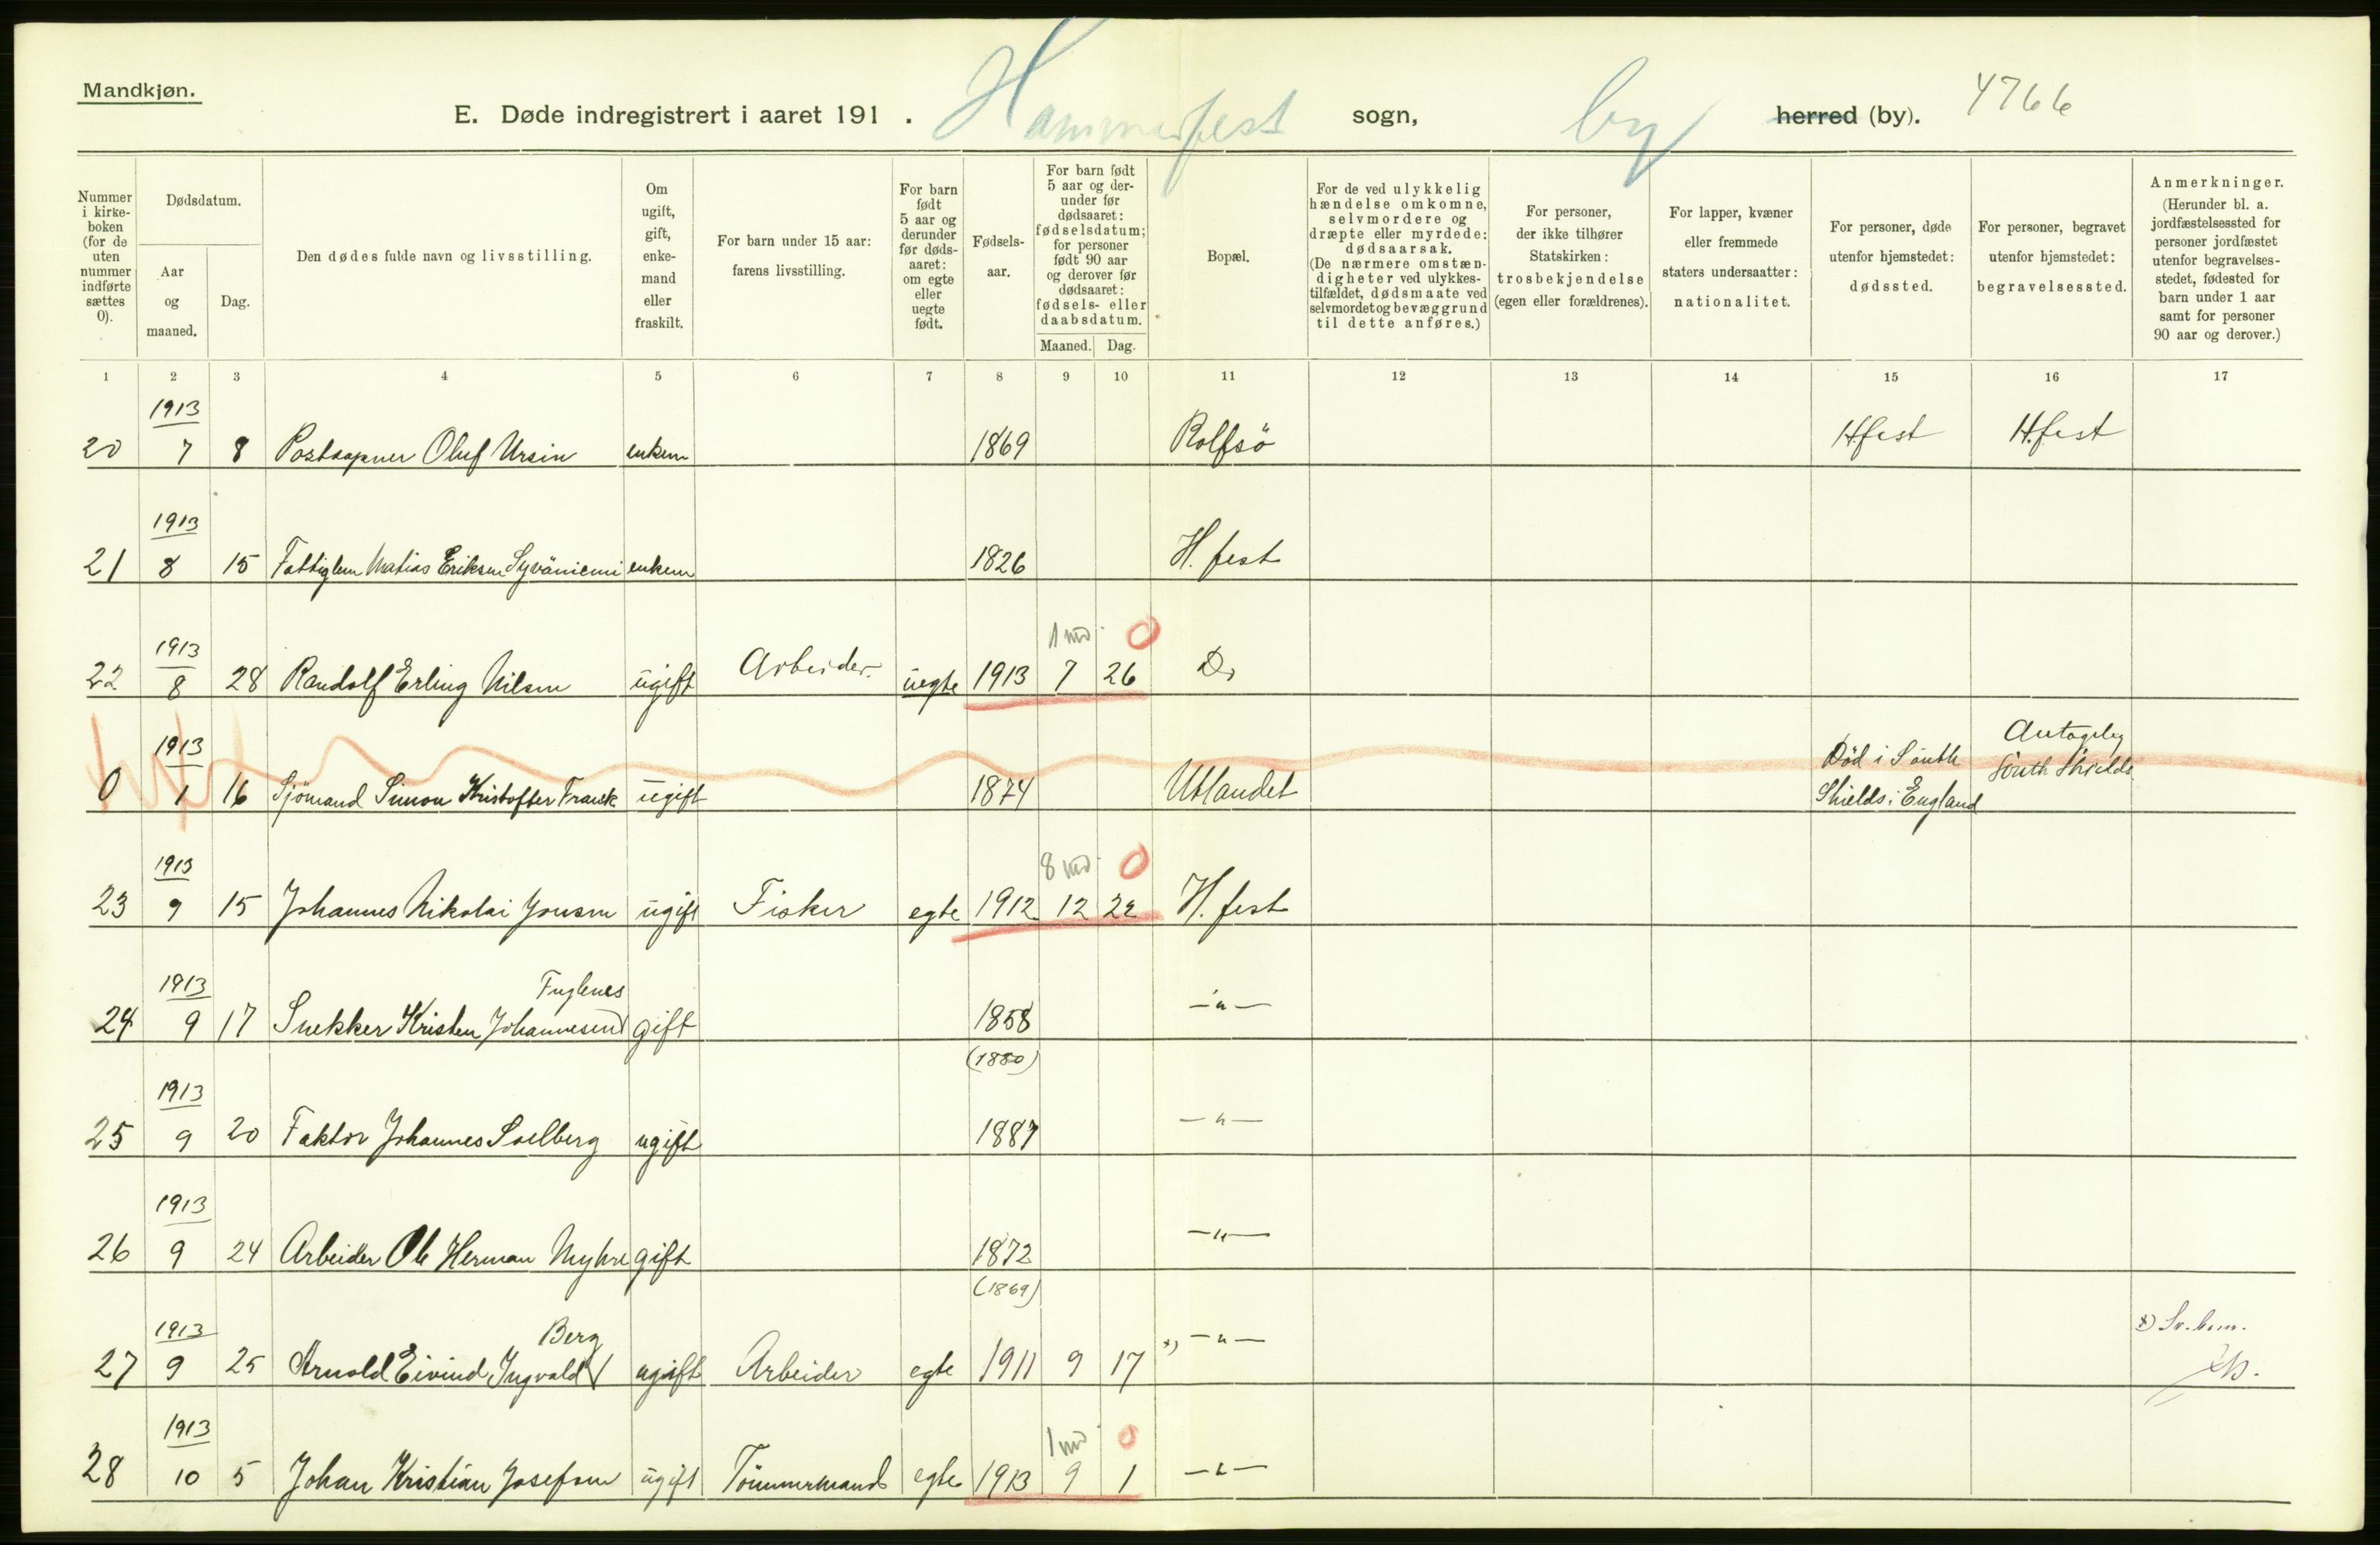 Mandkjøn.
E. Døde indregistrert i aaret 191 . Hammerfest sogn, by herred (by). 4766
Nummer i kirke-boken (for de uten nummer indførte sættes 0).
Dødsdatum.
Aar og maaned.
Dag.
Den dødes fulde navn og livsstilling.
Om ugift, gift, enke-mand eller fraskilt.
For barn under 15 aar: farens livsstilling.
For barn født 5 aar og derunder før døds-aaret: om egte eller uegte født.
Fødsels-aar.
For barn født 5 aar og der-under før dødsaaret: fødselsdatum; for personer født 90 aar og derover før dødsaaret: fødsels- eller daabsdatum.
Maaned. Dag.
Bopæl.
For de ved ulykkelig hændelse omkomne, selvmordere og dræpte eller myrdede: dødsaarsak. (De nærmere omstæn-digheter ved ulykkes-tilfældet, dødsmaate ved selvmordet og bevæggrund til dette anføres.)
For personer, der ikke tilhører Statskirken: trosbekjendelse (egen eller forældrenes).
For lapper, kvæner eller fremmede staters undersaatter: nationalitet.
For personer, døde utenfor hjemstedet: dødssted.
For personer, begravet utenfor hjemstedet: begravelsessted.
Anmerkninger. (Herunder bl. a. jordfæstelsessted for personer jordfæstet utenfor begravelses-stedet, fødested for barn under 1 aar samt for personer 90 aar og derover.)
1 2 3 4 5 6 7 8 9 10 11 12 13 14 15 16 17
1913
20 7 8 Postaapner Oluf Ursin enkem 1869 Rolfsö H.fest H.fest
1913
21 8 15 Fattiglem Matias Eriksen Syväniemi enkem 1826 H. fest
1913 1 md 0
22 8 28 Randolf Erling Nilsen ugift Arbeider uegte 1913 7 26 Do
1913
0 1 16 Sjömand Simon Kristoffer Franck ugift 1874 Utlandet Död i South Shields i England Antagelig South Shields
1913 8 md 0
23 9 15 Johannes Nikolai Jonsen ugift Fisker egte 1912 12 22 H. fest
1913 Fuglenes
24 9 17 Snekker Kristen Johannesen gift 1858 — " —
(1880)
1913
25 9 20 Faktor Johannes Soelberg ugift 1887 — " —
1913
26 9 24 Arbeider Ole Herman Myhre gift 1872 — " —
(1869)
1913 Berg
27 9 25 Arnold Eivind Ingvald ugift Arbeider egte 1911 9 17 x) — " — x)
1913 1 md 0
28 10 5 Johan Kristian Josefsen ugift Tömmermand egte 1913 9 1 — " —